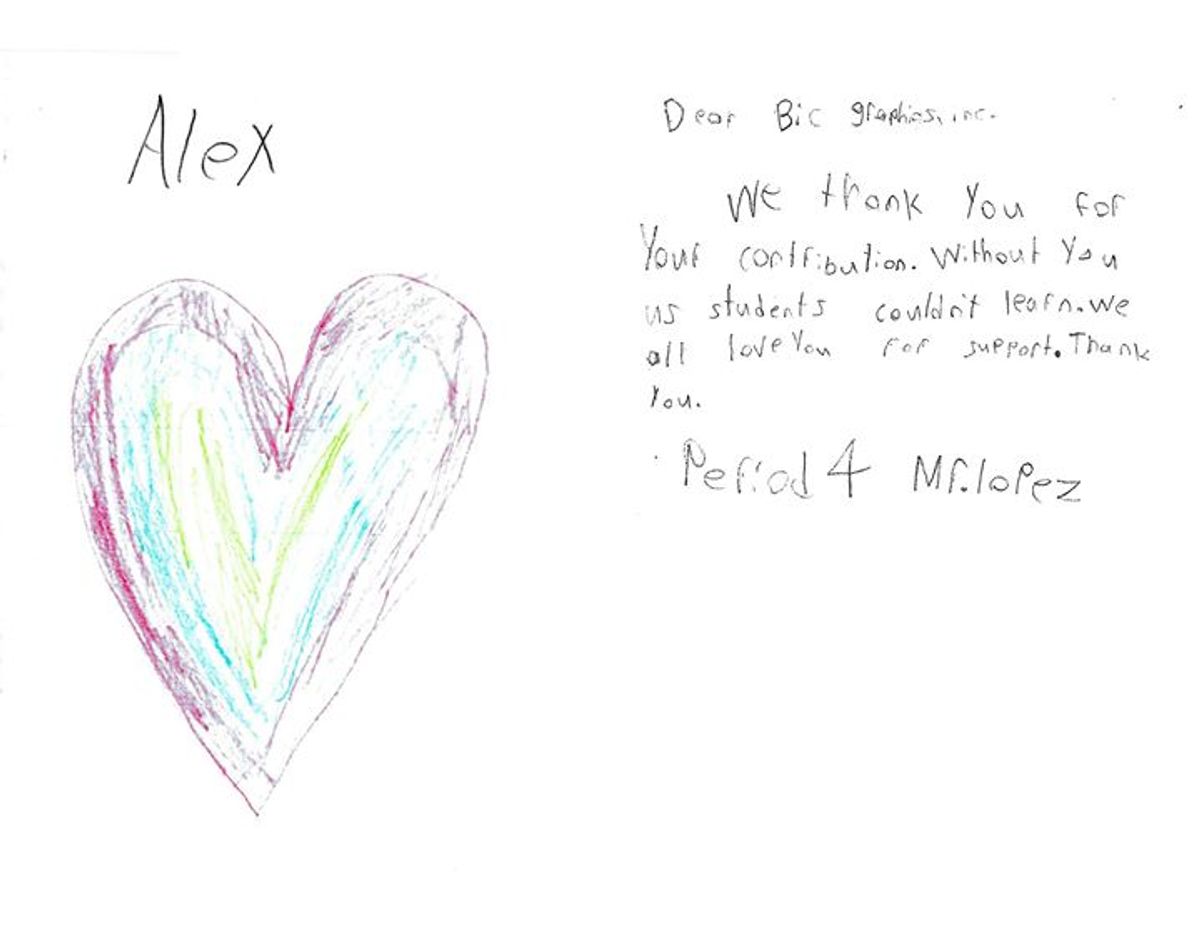 Alex
Dear Bic graphics, inc.
We thank You for
Your contribution. Without You
us students couldn't learn. We
all love You for support. Thank
You.
Period 4 Mr. lopez